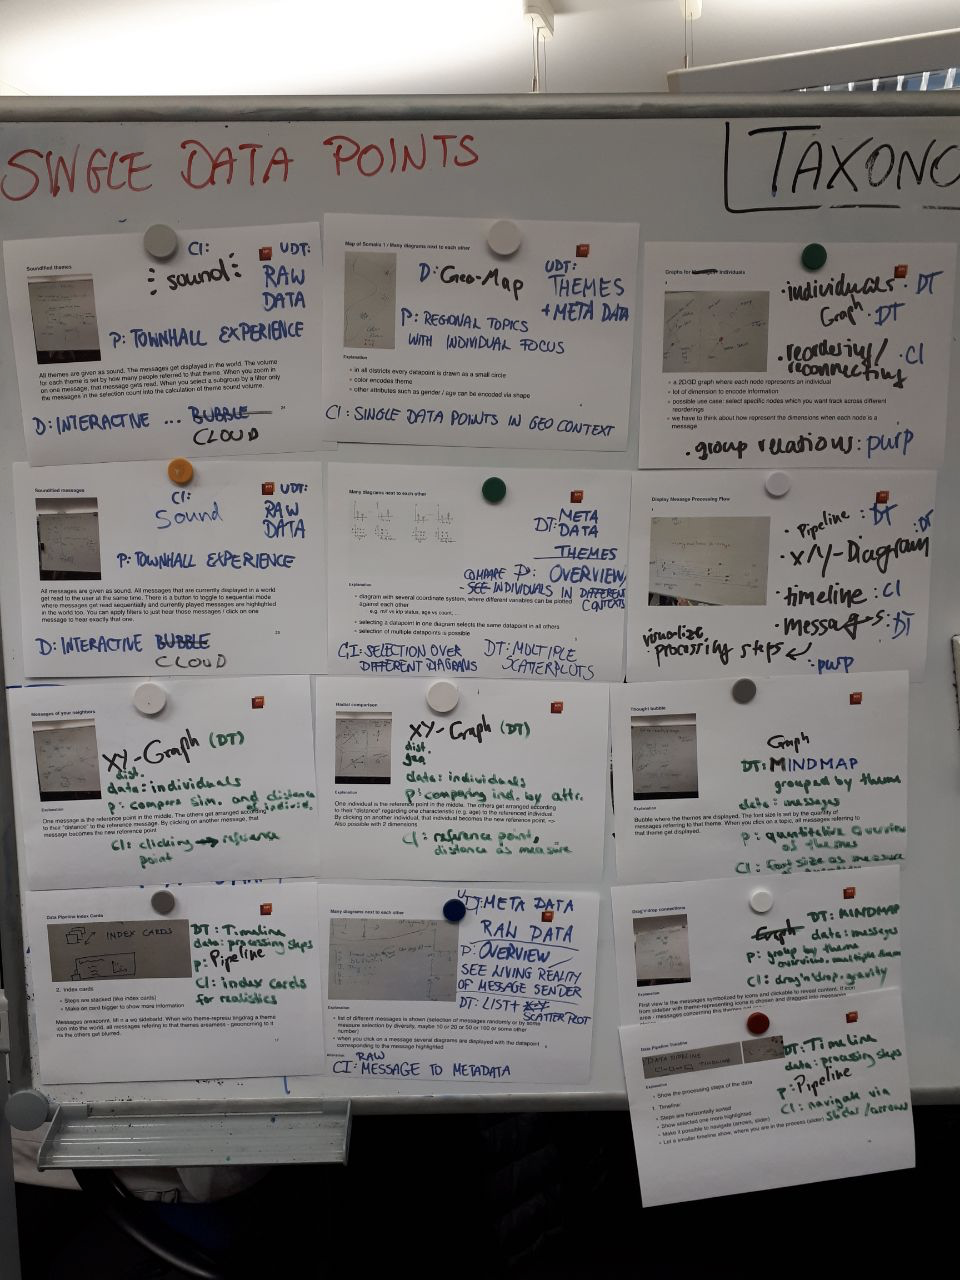 SINGLE DATA POINTS
TAXONO
Soundified themes
CI:
sound
UDT:
RAW
DATA
P: TOWNHALL EXPERIENCE
All themes are given as sound. The messages get displayed in the world. The volume
for each theme is set by how many people referred to that theme. When you zoom in
on one message, that message gets read. When you select a subgroup by a filter only
the messages in the selection count into the calculation of theme sound volume.
D: INTERACTIVE ... BUBBLE
CLOUD
Map of Somalia 1 / Many diagrams next to each other
D: Geo-Map
UDT:
THEMES
+ META DATA
P: REGIONAL TOPICS
WITH INDIVIDUAL FOCUS
Explanation
• in all districts every datapoint is drawn as a small circle
• color encodes theme
• other attributes such as gender / age can be encoded via shape
CI: SINGLE DATA POINTS IN GEO CONTEXT
Graphs for Individuals
• individuals • DT
Graph • DT
• reordering / • CI
reconnecting
• a 2D/3D graph where each node represents an individual
• lot of dimension to encode information
• possible use case: select specific nodes which you want track across different
reorderings
• we have to think about how represent the dimensions when each node is a
message
• group relations: purp
Soundified messages
CI:
Sound
UDT:
RAW
DATA
P: TOWNHALL EXPERIENCE
All messages are given as sound. All messages that are currently displayed in a world
get read to the user at the same time. There is a button to toggle to sequential mode
where messages get read sequentially and currently played messages are highlighted
in the world too. You can apply filters to just hear those messages / click on one
message to hear exactly that one.
D: INTERACTIVE BUBBLE
CLOUD
Many diagrams next to each other
DT: META
DATA
THEMES
COMPARE P: OVERVIEW,
SEE INDIVIDUALS IN DIFFERENT
CONTEXTS
Explanation
• diagram with several coordinate system, where different variables can be plotted
against each other
• selecting a datapoint in one diagram selects the same datapoint in all others
• selection of multiple datapoints is possible
CI: SELECTION OVER
DIFFERENT DIAGRAMS
DT: MULTIPLE
SCATERPLOTS
Display Message Processing Flow
• Pipeline : DT
• X/Y-Diagram :DT
• timeline : CI
• messages: DT
visualize
processing steps
: purp
Messages of your neighbors
XY-Graph (DT)
dist.
data: individuals
p: compare sim. and distance
of individ.
Explanation
One individual is the reference point in the middle. The others get arranged according
to their "distance" to the reference message. By clicking on another message, that
message becomes the new reference point
CI: clicking → reference
point
Radial comparison
XY-Graph (DT)
dist.
data: individuals
p: comparing ind. by attr.
Explanation
One individual is the reference point in the middle. The others get arranged according
to their "distance" regarding one characteristic (e.g. age) to the referenced individual.
By clicking on another individual, that individual becomes the new reference point. =>
Also possible with 2 dimensions
CI: reference point,
distance as measure
Thought bubble
Graph
DT: MINDMAP
grouped by theme
data: messages
Explanation
Bubble where the themes are displayed. The font size is set by the quantity of
messages referring to that theme. When you click on a topic, all messages referring to
that theme get displayed.
p: quantitative overview
of themes
CI: font size as measure
Data Pipeline Index Cards
INDEX CARDS
DT: Timeline
data: processing steps
p: Pipeline
CI: index cards
for realistics
2. Index cards
• Steps are stacked (like index cards)
• Make on card bigger to show more information
Many diagrams next to each other
UDT: META DATA
RAW DATA
P: OVERVIEW
SEE LIVING REALITY
OF MESSAGE SENDER
DT: LIST +
SCATTER PLOT
Explanation
• list of different messages is shown (selection of messages randomly or by some
measure selection by diversity, maybe 10 or 20 or 50 or 100 or some other
number)
• when you click on a message several diagrams are displayed with the datapoint
corresponding to the message highlighted
RAW
CI: MESSAGE TO METADATA
Drag'n drop connections
Graph DT: MINDMAP
data: messages
p: group by theme
CI: drag'n drop, gravity
Explanation
First view is the messages symbolized by icons and clickable to reveal content. If icon
from sidebar with theme-representing icons is chosen and dragged into messages
Data Pipeline Timeline
DATA PIPELINE
TIMELINE
DT: Timeline
data: processing steps
p: Pipeline
CI: navigate via
slider/arrows
Explanation
• Show the processing steps of the data
1. Timeline:
• Steps are horizontally sorted
• Show selected one more highlighted
• Make it possible to navigate (arrows, slider)
• Let a smaller timeline show, where you are in the process (slider)